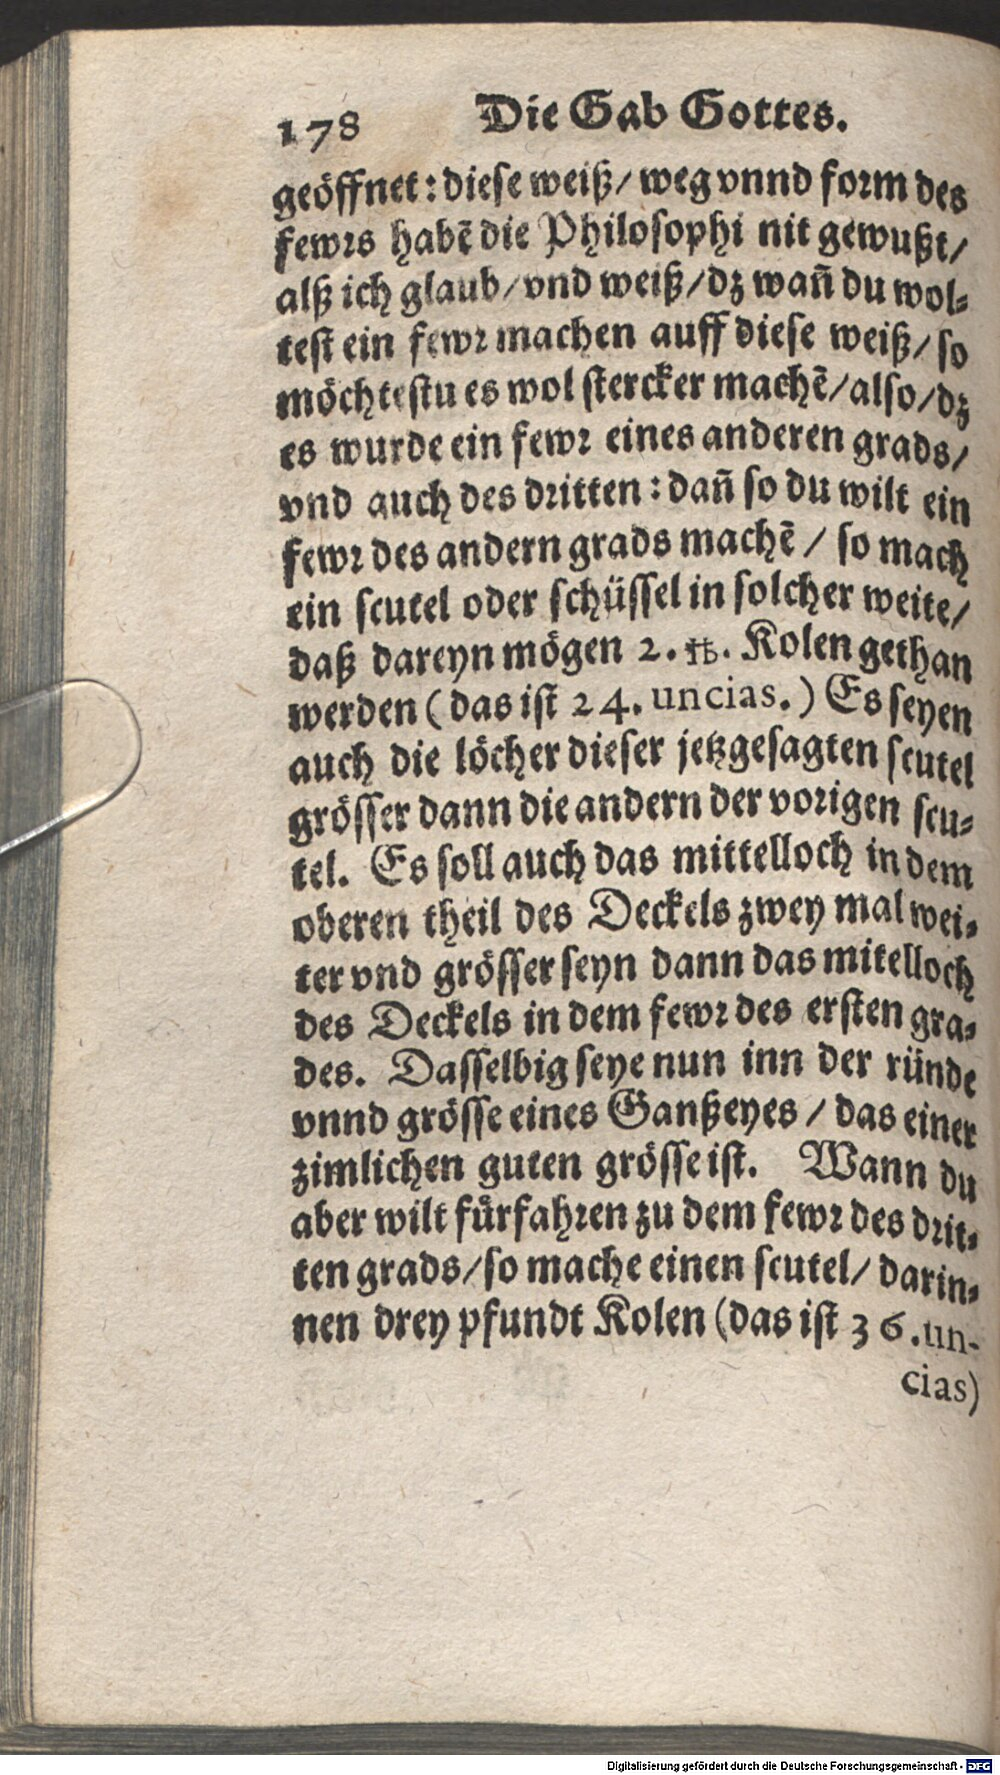 178 Die Gab Gottes.
geöffnet: diese weiß/ weg vnnd form des
fewrs habē die Philosophi nit gewußt/
alß ich glaub/ vnd weiß/ dz wañ du wol-
test ein fewr machen auff diese weiß/ so
möchtestu es wol stercker machē/ also/ dz
es wurde ein fewr eines anderen grads/
vnd auch des dritten: dañ so du wilt ein
fewr des andern grads machē / so mach
ein scutel oder schüssel in solcher weite/
daß dareyn mögen 2. ℔. Kolen gethan
werden (das ist 24. uncias.) Es seyen
auch die löcher dieser jetzgesagten scutel
grösser dann die andern der vorigen scu-
tel. Es soll auch das mittelloch in dem
oberen theil des Deckels zwey mal wei-
ter vnd grösser seyn dann das mitelloch
des Deckels in dem fewr des ersten gra-
des. Dasselbig seye nun inn der ründe
vnnd grösse eines Ganßeyes / das einer
zimlichen guten grösse ist. Wann du
aber wilt fürfahren zu dem fewr des drit-
ten grads/ so mache einen scutel/ darin-
nen drey pfundt Kolen (das ist 36. un-
cias)
Digitalisierung gefördert durch die Deutsche Forschungsgemeinschaft - DFG